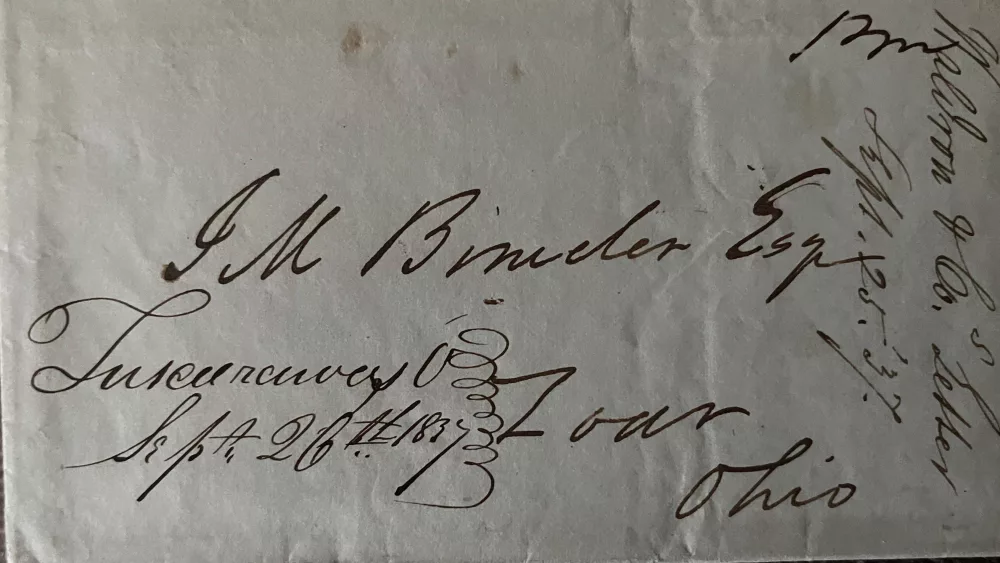 J M Bimeler Esq
Zoar
Ohio
Tuscarawas O
Sept. 26th 1837
& Co.'s Letter
Sept. 25. '37.